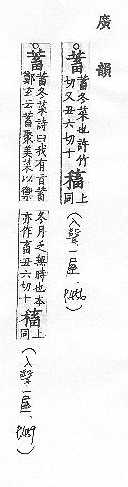 廣韻
蓄蓄冬菜也許竹
切又丑六切十
稸上
同
(入聲一屋、P.456)
蓄蓄冬菜詩曰我有旨蓄
鄭玄云蓄聚美菜以禦
冬月乏無時也本
亦作畜丑六切十
稸上
同
(入聲一屋、